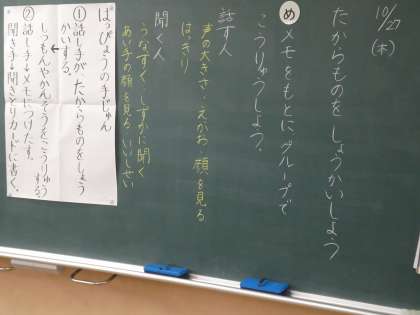 10/27
(木)
たからものを しょうかいしよう
め メモをもとに グループで
こうりゅうしよう。
話す人
声の大きさ・えがお・顔を見る
はっきり
聞く人
うなずく・しずかに聞く
あい手の顔を見る・しせい
はっぴょうの手じゅん
①話し手が、たからものをしょう
かいする。
しつもんやかんそうをこうりゅう
する。
②話し手→メモにつけたす。
聞き手→聞きとりカードに書く。